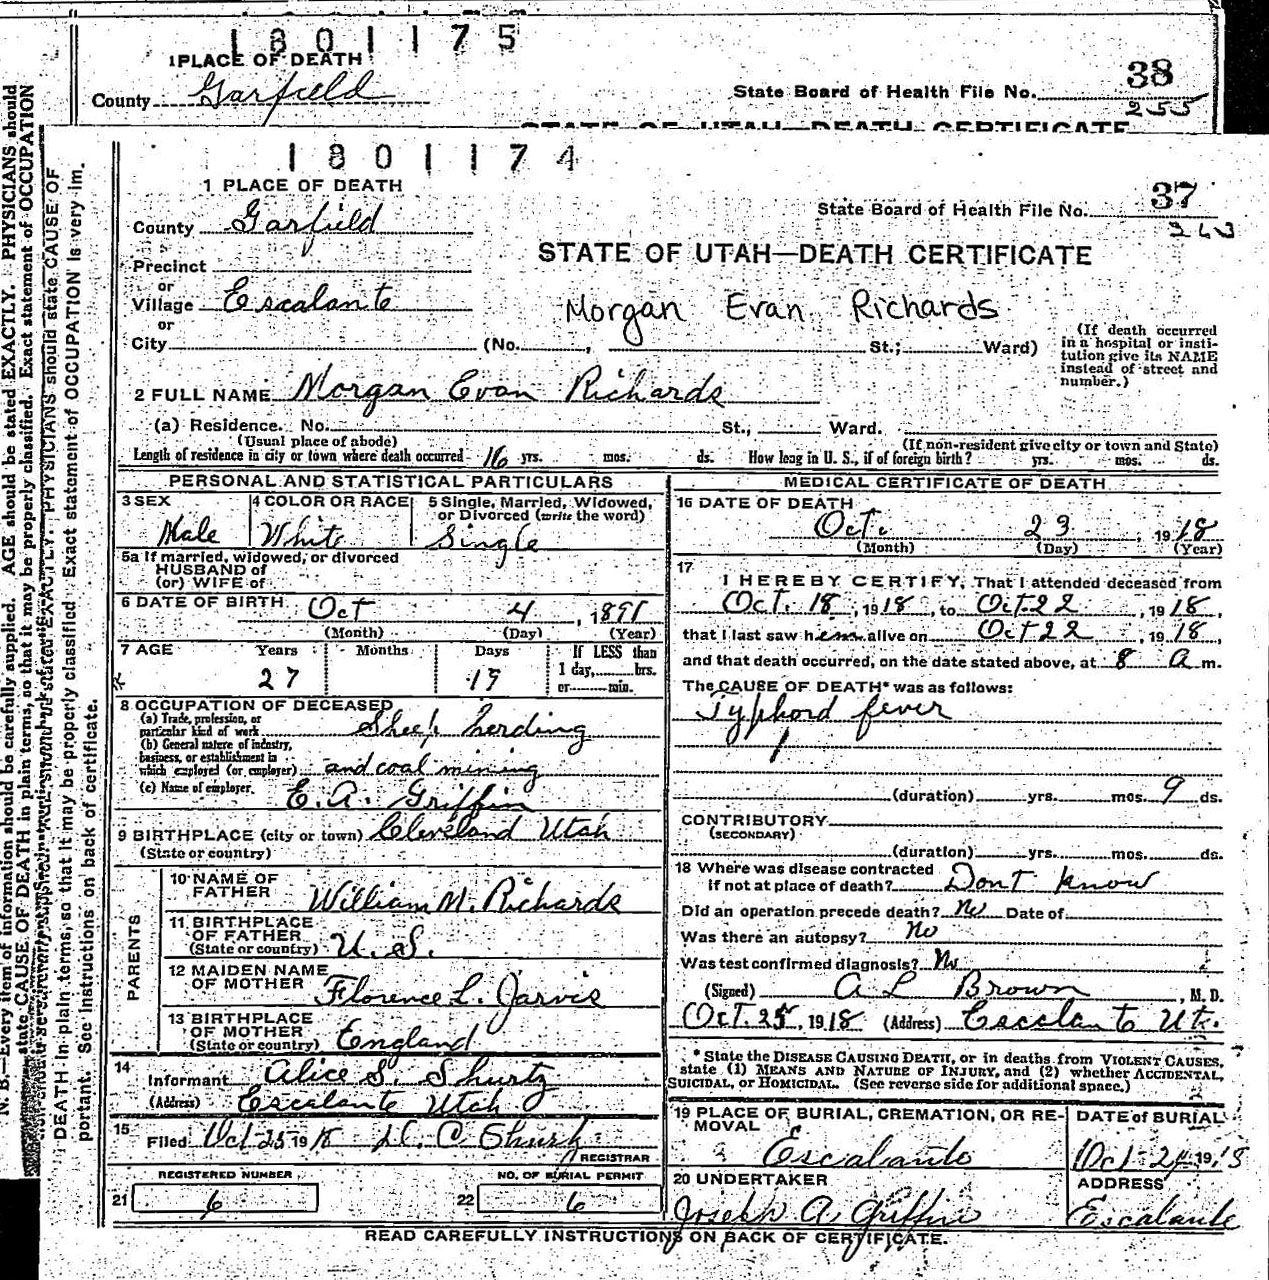 1801175
1 PLACE OF DEATH
County Garfield
38
State Board of Health File No. 255
STATE OF UTAH—DEATH CERTIFICATE
N. B.—Every item of information should be carefully supplied. AGE should be stated EXACTLY. PHYSICIANS should
state CAUSE OF DEATH in plain terms, so that it may be properly classified. Exact statement of OCCUPATION
PHYSICIANS should state CAUSE OF
DEATH in plain terms, so that it may be properly classified. Exact statement of OCCUPATION is very im-
portant. See instructions on back of certificate.
1801174
1 PLACE OF DEATH
County Garfield
State Board of Health File No. 37
263
STATE OF UTAH—DEATH CERTIFICATE
Precinct
or
Village Escalante
Morgan Evan Richards
or
City (No. , St.; Ward)
(If death occurred
in a hospital or insti-
tution give its NAME
instead of street and
number.)
2 FULL NAME Morgan Evan Richards
(a) Residence. No. St., Ward.
(Usual place of abode) (If non-resident give city or town and State)
Length of residence in city or town where death occurred 16 yrs. mos. ds. How long in U. S., if of foreign birth? yrs. mos. ds.
PERSONAL AND STATISTICAL PARTICULARS
3 SEX Male
4 COLOR OR RACE White
5 Single, Married, Widowed,
or Divorced (write the word)
Single
5a If married, widowed, or divorced
HUSBAND of
(or) WIFE of
6 DATE OF BIRTH Oct 4, 1891
(Month) (Day) (Year)
7 AGE Years Months Days If LESS than
27 19 1 day, hrs.
or min.
8 OCCUPATION OF DECEASED
(a) Trade, profession, or
particular kind of work Sheep herding
(b) General nature of industry,
business, or establishment in
which employed (or employer) and coal mining
(c) Name of employer. E. A. Griffin
9 BIRTHPLACE (city or town) Cleveland Utah
(State or country)
PARENTS
10 NAME OF
FATHER William M. Richards
11 BIRTHPLACE
OF FATHER
(State or country) U. S.
12 MAIDEN NAME
OF MOTHER Florence L. Jarvis
13 BIRTHPLACE
OF MOTHER
(State or country) England
14
Informant Alice S. Shurtz
(Address) Escalante Utah
15
Filed Oct 25 1918 Shurtz
REGISTRAR
REGISTERED NUMBER NO. OF BURIAL PERMIT
21 6 22 6
MEDICAL CERTIFICATE OF DEATH
16 DATE OF DEATH
Oct. 23, 1918
(Month) (Day) (Year)
17
I HEREBY CERTIFY, That I attended deceased from
Oct. 18, 1918, to Oct 22, 1918,
that I last saw him alive on Oct 22, 1918,
and that death occurred, on the date stated above, at 8 A m.
The CAUSE OF DEATH* was as follows:
Typhord fever
(duration) yrs. mos. 9 ds.
CONTRIBUTORY
(SECONDARY)
(duration) yrs. mos. ds.
18 Where was disease contracted
if not at place of death? Dont know
Did an operation precede death? No Date of
Was there an autopsy? No
Was test confirmed diagnosis? No
(Signed) A L Brown, M. D.
Oct. 25, 1918 (Address) Escalante Ut.
* State the DISEASE CAUSING DEATH, or in deaths from VIOLENT CAUSES,
state (1) MEANS AND NATURE OF INJURY, and (2) whether ACCIDENTAL,
SUICIDAL, or HOMICIDAL. (See reverse side for additional space.)
19 PLACE OF BURIAL, CREMATION, OR RE-
MOVAL
Escalante
DATE of BURIAL
Oct 24 1918
20 UNDERTAKER
Joseph A. Griffin
ADDRESS
Escalante
READ CAREFULLY INSTRUCTIONS ON BACK OF CERTIFICATE.